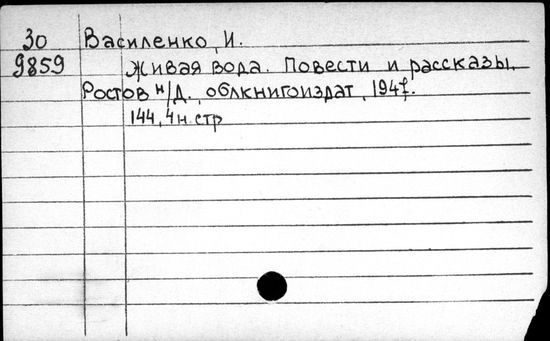 30 Василенко, И.
9859 Живая вода. Повести и рассказы.
Ростов н/Д., облкнигоиздат,
144, 4 н. стр